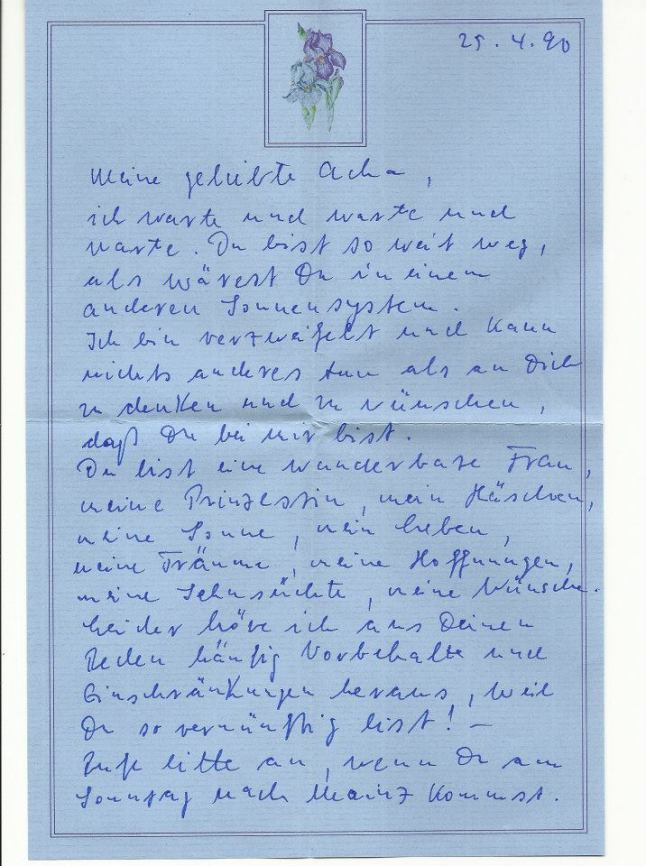 25.4.90
Meine geliebte Acha,
ich warte und warte und
warte. Du bist so weit weg,
als wärest Du in einem
anderen Sonnensystem.
Ich bin verzweifelt und kann
nichts anderes tun als an Dich
zu denken und zu wünschen,
daß Du bei mir bist.
Du bist eine wunderbare Frau,
meine Prinzessin, mein Häschen,
meine Sonne, mein Leben,
meine Träume, meine Hoffnungen,
meine Sehnsüchte, meine Wünsche.
Leider höre ich aus Deinen
Reden häufig Vorbehalte und
Einschränkungen heraus, weil
Du so vernünftig bist! –
Rufe bitte an, wenn Du am
Sonntag nach Mainz kommst.